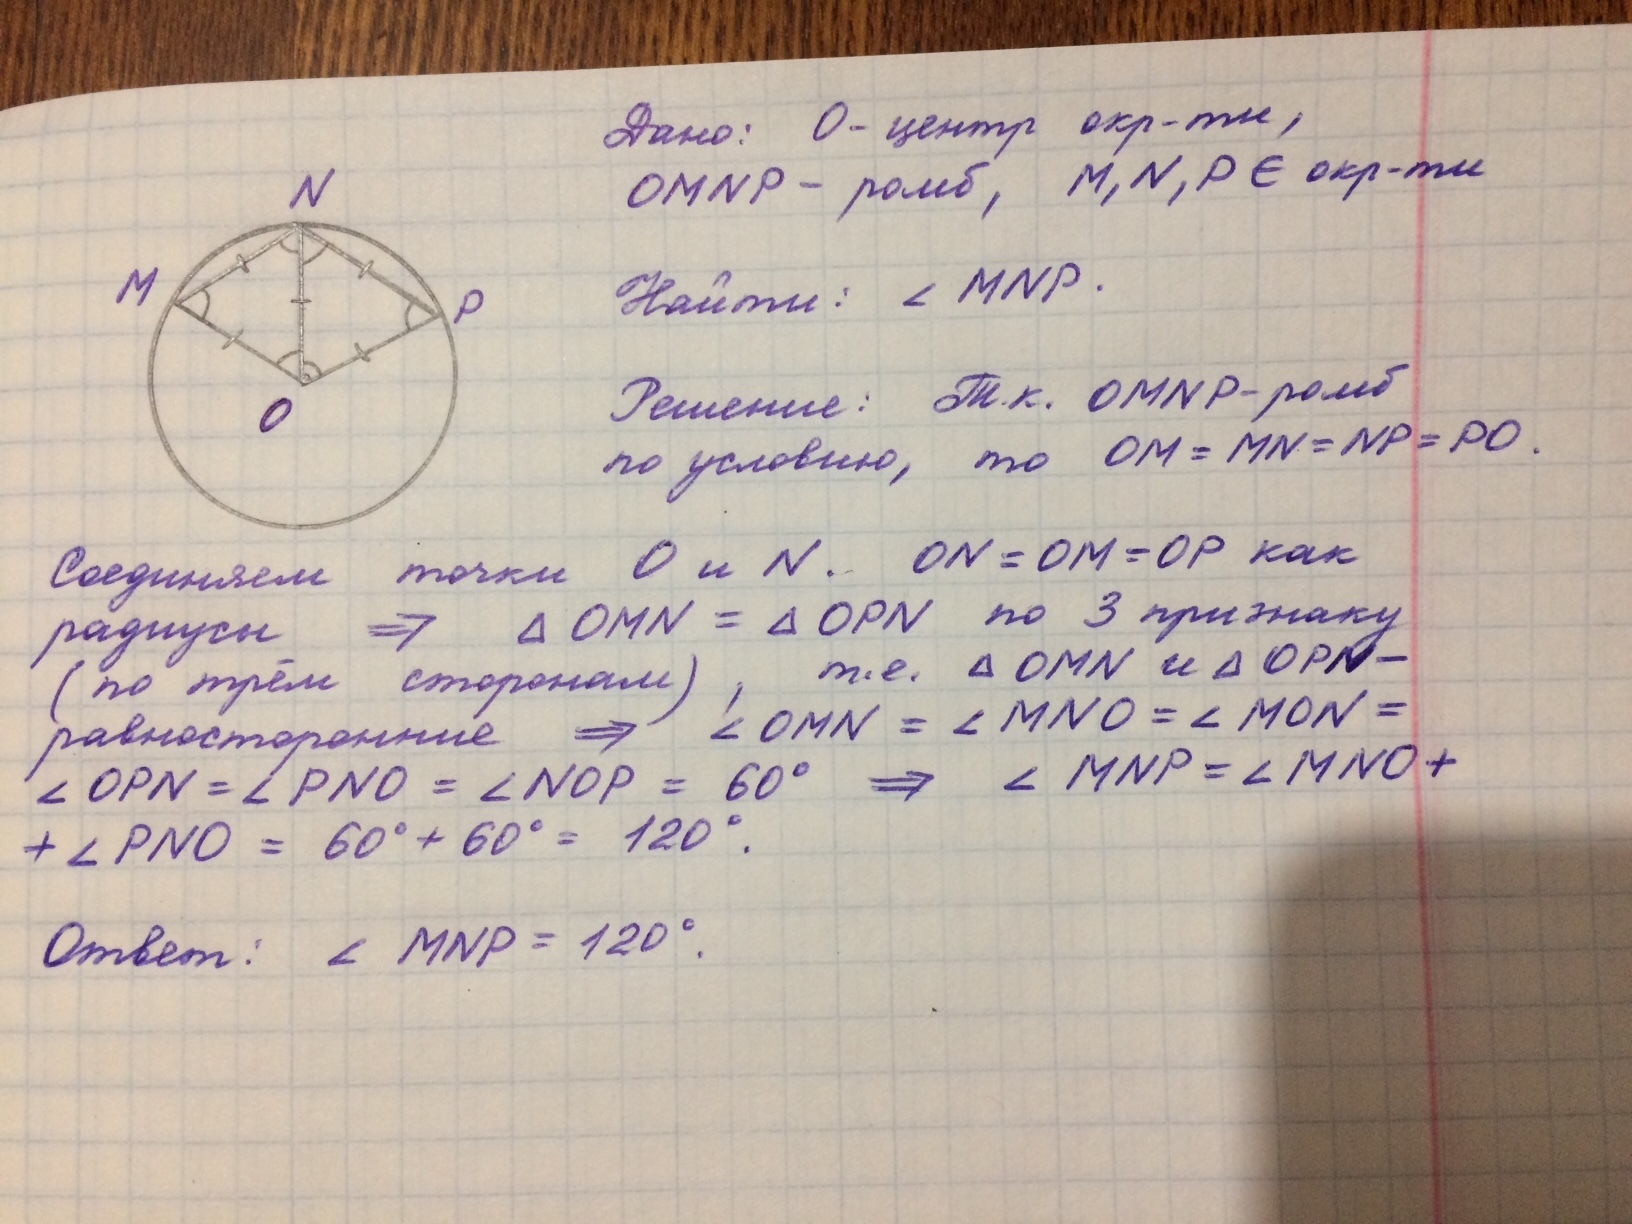 Дано: О - центр окр-ти,
OMNP - ромб, M, N, P ∈ окр-ти
Найти: ∠ MNP.
Решение: Т.к. OMNP - ромб
по условию, то OM = MN = NP = PO.
N
M
P
O
Соединяем точки О и N. ON = OM = OP как
радиусы ⇒ △ OMN = △ OPN по 3 признаку
(по трём сторонам), т.е. △ OMN и △ OPN -
равносторонние ⇒ ∠ OMN = ∠ MNO = ∠ MON =
∠ OPN = ∠ PNO = ∠ NOP = 60° ⇒ ∠ MNP = ∠ MNO +
+ ∠ PNO = 60° + 60° = 120°.
Ответ: ∠ MNP = 120°.